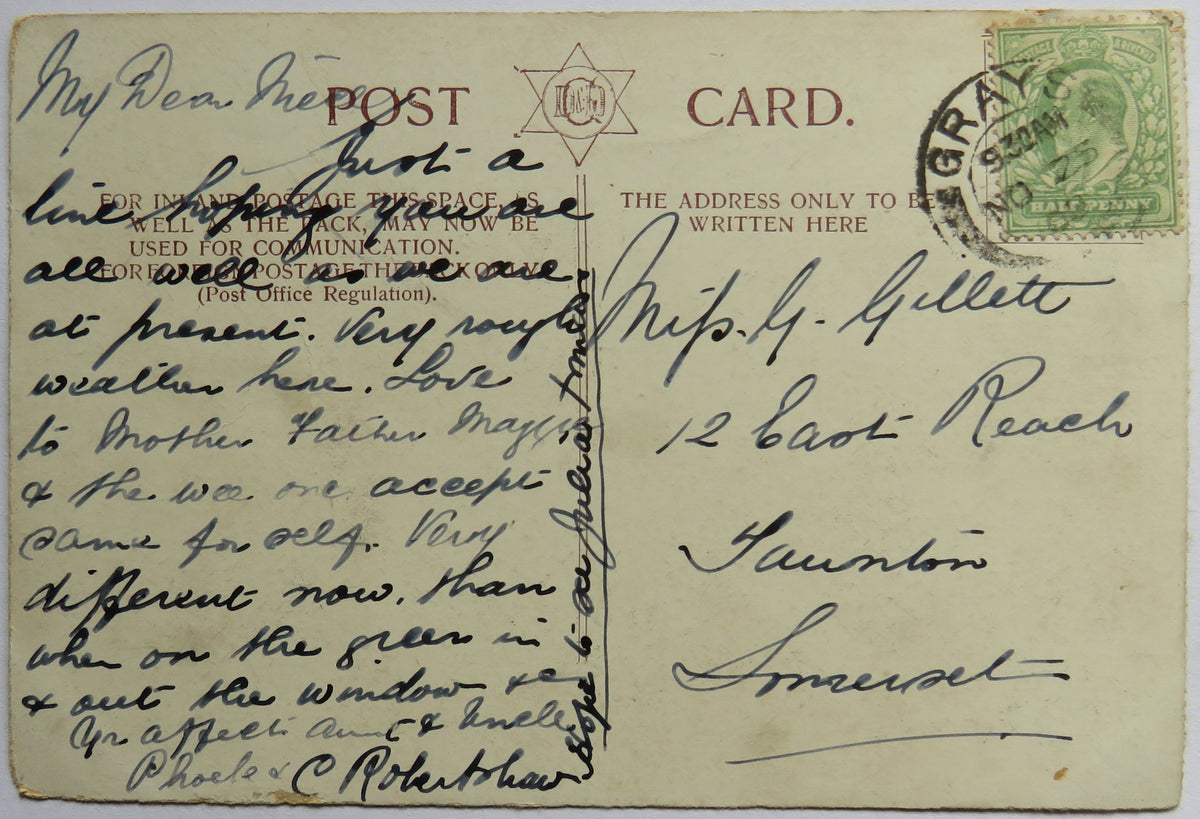 My Dear Niece
POST CARD.
Just a
line hoping you are
all well as we are
at present. Very rough
weather here. Love
to Mother Father Maggie
& the wee one accept
same for self. Very
different now. than
when on the green in
& out the window &c
Yr affect. Aunt & Uncle
Phoebe & C Robertshaw
Hope to see Julia
FOR INLAND POSTAGE THIS SPACE, AS
WELL AS THE BACK, MAY NOW BE
USED FOR COMMUNICATION.
FOR FOREIGN POSTAGE THE BACK ONLY
(Post Office Regulation).
THE ADDRESS ONLY TO BE
WRITTEN HERE
GRAYS
9.30 AM
NO 25
POSTAGE REVENUE
HALFPENNY
Miss. G. Gillett
12 East Reach
Taunton
Somerset